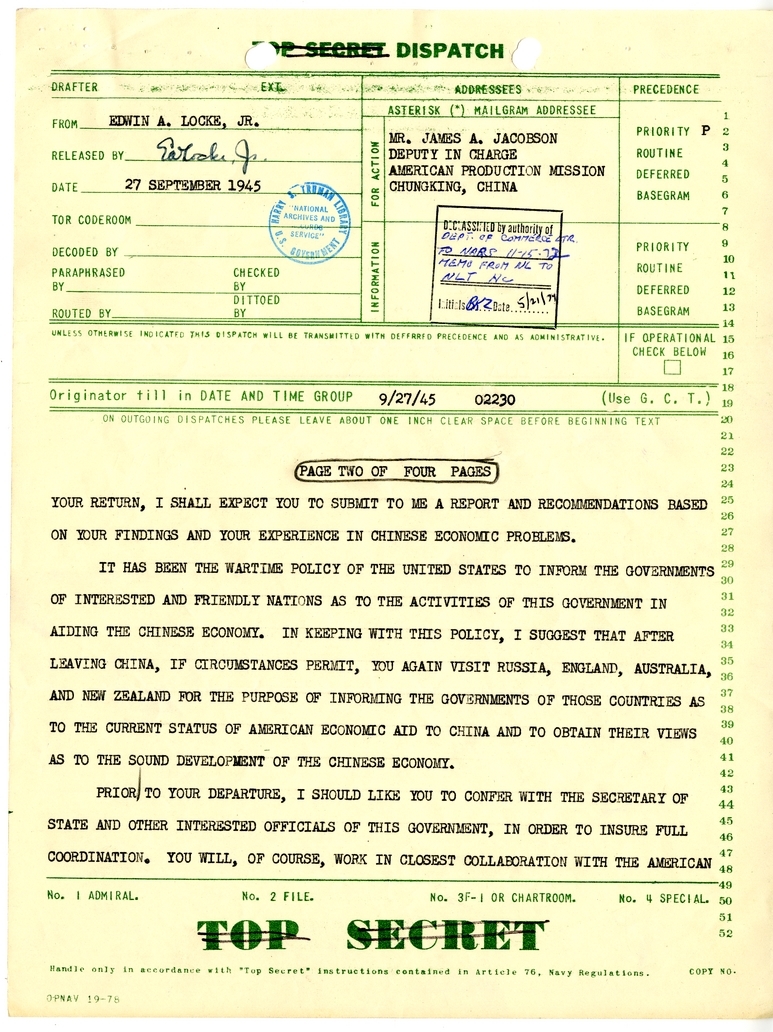 TOP SECRET DISPATCH
DRAFTER EXT. ADDRESSEES PRECEDENCE
ASTERISK (*) MAILGRAM ADDRESSEE
FROM EDWIN A. LOCKE, JR.
RELEASED BY EALocke, Jr.
DATE 27 SEPTEMBER 1945
TOR CODEROOM
DECODED BY
PARAPHRASED BY
CHECKED BY
DITTOED BY
ROUTED BY
FOR ACTION
MR. JAMES A. JACOBSON
DEPUTY IN CHARGE
AMERICAN PRODUCTION MISSION
CHUNGKING, CHINA
PRIORITY P
ROUTINE
DEFERRED
BASEGRAM
HARRY S. TRUMAN LIBRARY
"NATIONAL
ARCHIVES AND
RECORDS
SERVICE"
U.S. GOVERNMENT
INFORMATION
DECLASSIFIED by authority of
DEPT. OF COMMERCE LTR.
TO NARS 11-15-72
MEMO FROM NL TO
NLT NC
Initials Date 5/21/79
PRIORITY
ROUTINE
DEFERRED
BASEGRAM
UNLESS OTHERWISE INDICATED THIS DISPATCH WILL BE TRANSMITTED WITH DEFERRED PRECEDENCE AND AS ADMINISTRATIVE.
IF OPERATIONAL
CHECK BELOW
Originator fill in DATE AND TIME GROUP 9/27/45 02230 (Use G. C. T.)
ON OUTGOING DISPATCHES PLEASE LEAVE ABOUT ONE INCH CLEAR SPACE BEFORE BEGINNING TEXT
PAGE TWO OF FOUR PAGES
YOUR RETURN, I SHALL EXPECT YOU TO SUBMIT TO ME A REPORT AND RECOMMENDATIONS BASED
ON YOUR FINDINGS AND YOUR EXPERIENCE IN CHINESE ECONOMIC PROBLEMS.
IT HAS BEEN THE WARTIME POLICY OF THE UNITED STATES TO INFORM THE GOVERNMENTS
OF INTERESTED AND FRIENDLY NATIONS AS TO THE ACTIVITIES OF THIS GOVERNMENT IN
AIDING THE CHINESE ECONOMY. IN KEEPING WITH THIS POLICY, I SUGGEST THAT AFTER
LEAVING CHINA, IF CIRCUMSTANCES PERMIT, YOU AGAIN VISIT RUSSIA, ENGLAND, AUSTRALIA,
AND NEW ZEALAND FOR THE PURPOSE OF INFORMING THE GOVERNMENTS OF THOSE COUNTRIES AS
TO THE CURRENT STATUS OF AMERICAN ECONOMIC AID TO CHINA AND TO OBTAIN THEIR VIEWS
AS TO THE SOUND DEVELOPMENT OF THE CHINESE ECONOMY.
PRIOR TO YOUR DEPARTURE, I SHOULD LIKE YOU TO CONFER WITH THE SECRETARY OF
STATE AND OTHER INTERESTED OFFICIALS OF THIS GOVERNMENT, IN ORDER TO INSURE FULL
COORDINATION. YOU WILL, OF COURSE, WORK IN CLOSEST COLLABORATION WITH THE AMERICAN
1
2
3
4
5
6
7
8
9
10
11
12
13
14
15
16
17
18
19
20
21
22
23
24
25
26
27
28
29
30
31
32
33
34
35
36
37
38
39
40
41
42
43
44
45
46
47
48
49
50
51
52
No. 1 ADMIRAL. No. 2 FILE. No. 3F-1 OR CHARTROOM. No. 4 SPECIAL.
TOP SECRET
Handle only in accordance with "Top Secret" instructions contained in Article 76, Navy Regulations. COPY NO.
OPNAV 19-78